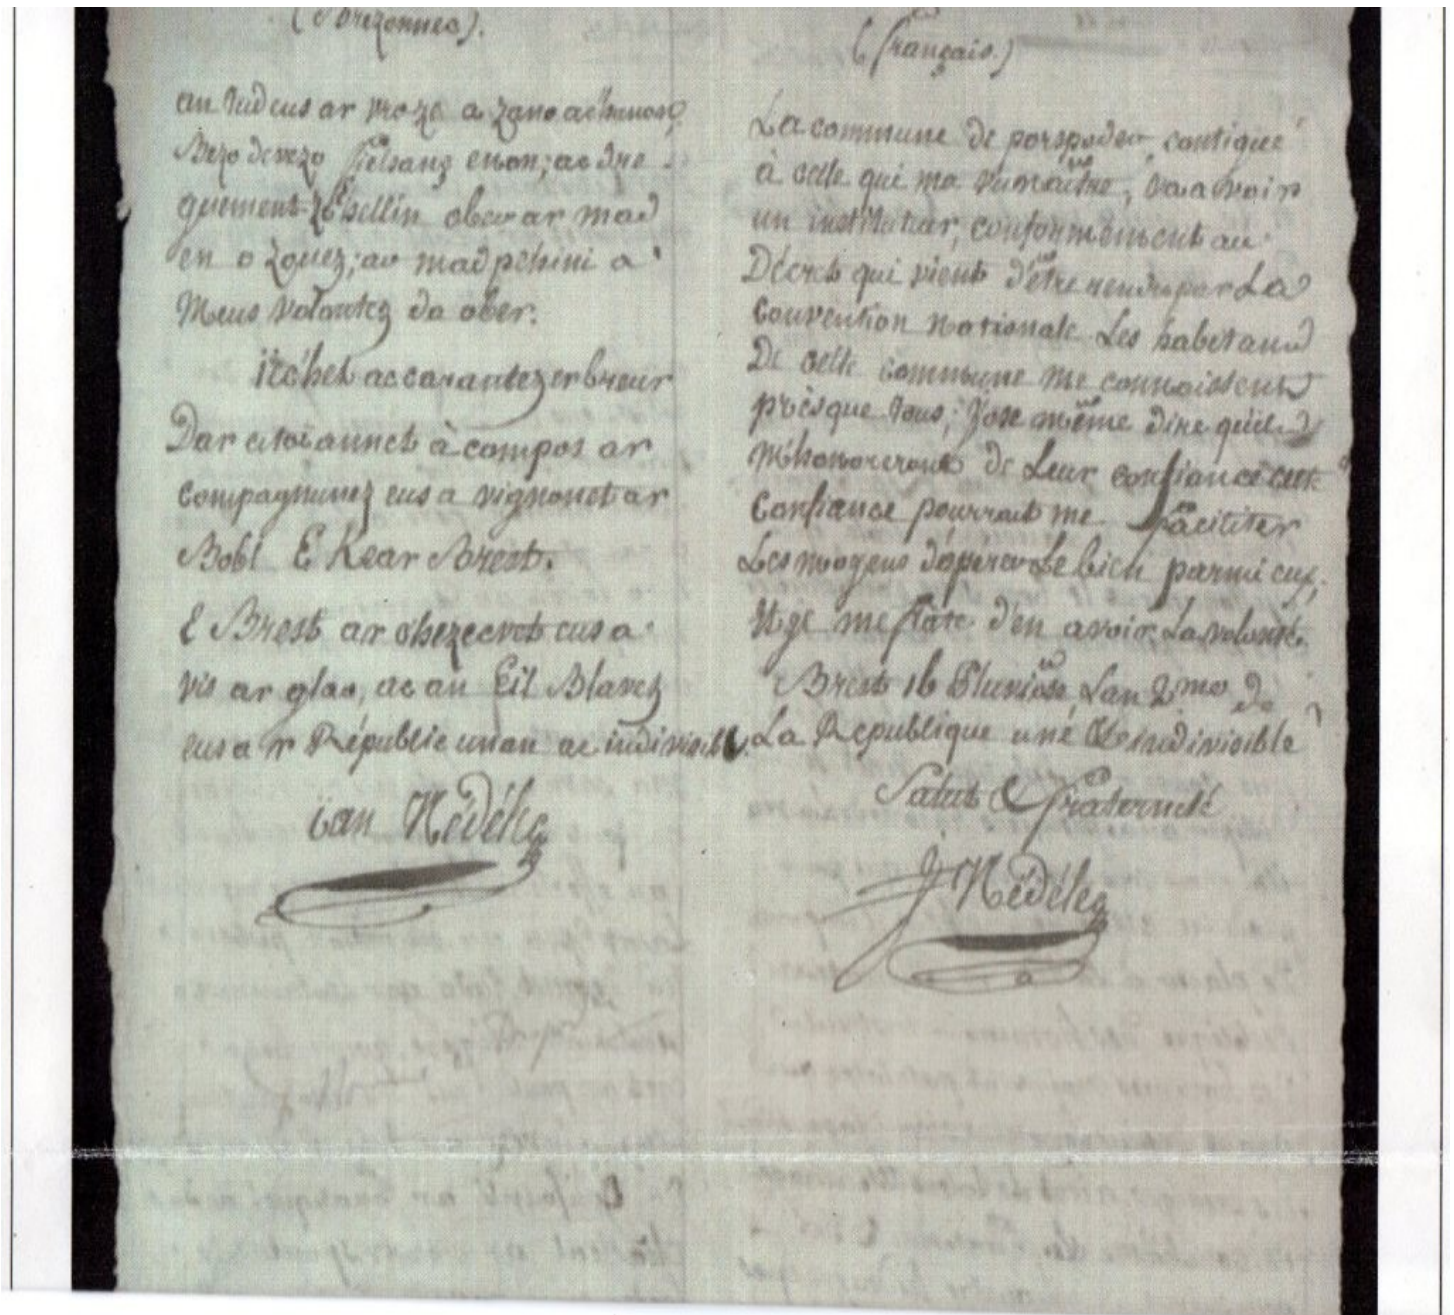 (Brezonnec).
an tud eus ar
Bezo devezo enon; ac dre
guement ober ar mad
en o zouez; ar mad pehini a
Meus volontez da ober.
iec'het ac carantez er breur
Dar citoiannet à compos ar
compagnunez eus a vignonet ar
Bobl E Kear Brest.
E Brest ar c'hezecvet eus a
vis ar glao, ac an Eil Blavez
eus a'r Républic unan ac indivisibl.
ian Nédélec
(français.)
La commune de porspoder, contigue
à celle qui ma vu naître, va avoir
un instituteur, conformément au
Décret qui vient d'être rendu par La
Convention nationale Les habitans
De cette commune me connaissent
presque tous, j'ose même dire qu'ils
m'honoreront de Leur confiance cette
Confiance pourrait me faciliter
Les moyens d'opérer Le bien parmi eux,
& je me flate d'en avoir La volonté.
Brest 16 Pluviôse, L'an 2me de
La République une & indivisible
Salut & fraternité
J Nédélec